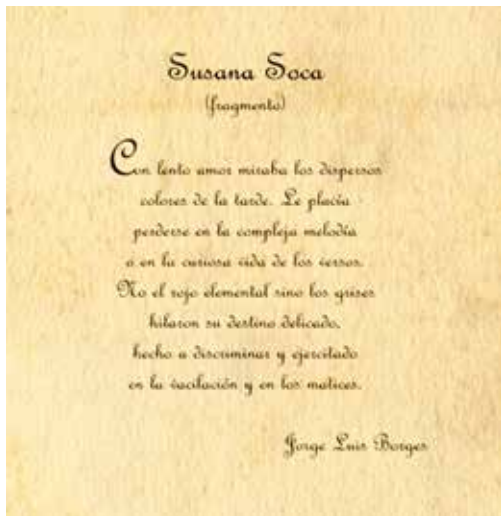 Susana Soca
(fragmento)
Con lento amor miraba los dispersos
colores de la tarde. Le placía
perderse en la compleja melodía
o en la curiosa vida de los versos.
No el rojo elemental sino los grises
hilaron su destino delicado,
hecho a discriminar y ejercitado
en la vacilación y en los matices.
Jorge Luis Borges